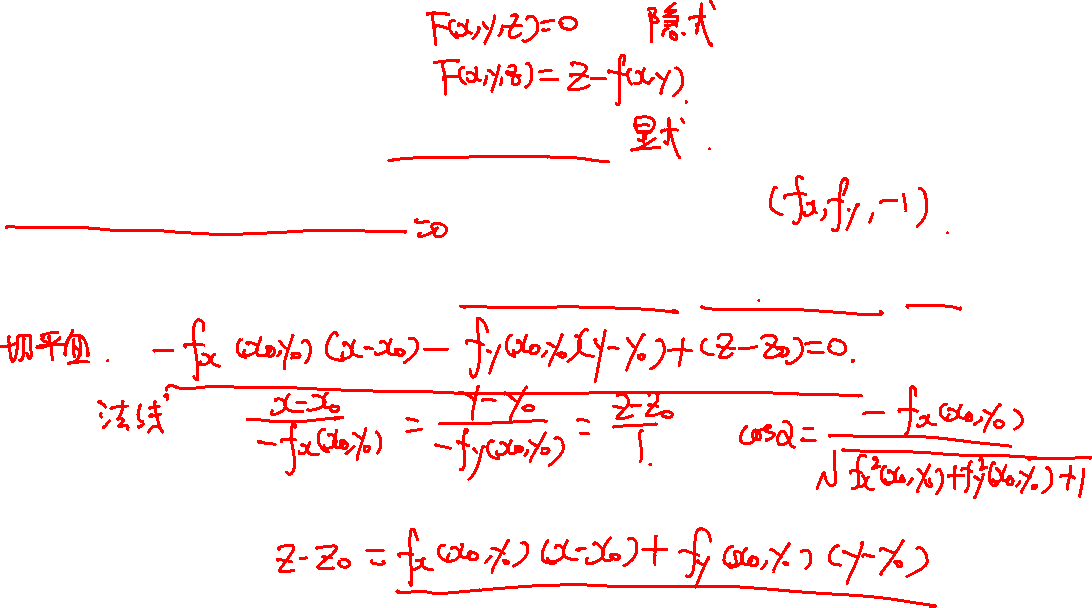 F(x,y,z)=0 隐式
F(x,y,z)=z-f(x,y).
显式.
(fx,fy,-1).
=0
切平面. -fx(x0,y0)(x-x0)-fy(x0,y0)(y-y0)+(z-z0)=0.
法线 (x-x0)/(-fx(x0,y0)) = (y-y0)/(-fy(x0,y0)) = (z-z0)/1. cosα=-fx(x0,y0)/√(fx²(x0,y0)+fy²(x0,y0)+1)
z-z0=fx(x0,y0)(x-x0)+fy(x0,y0)(y-y0)